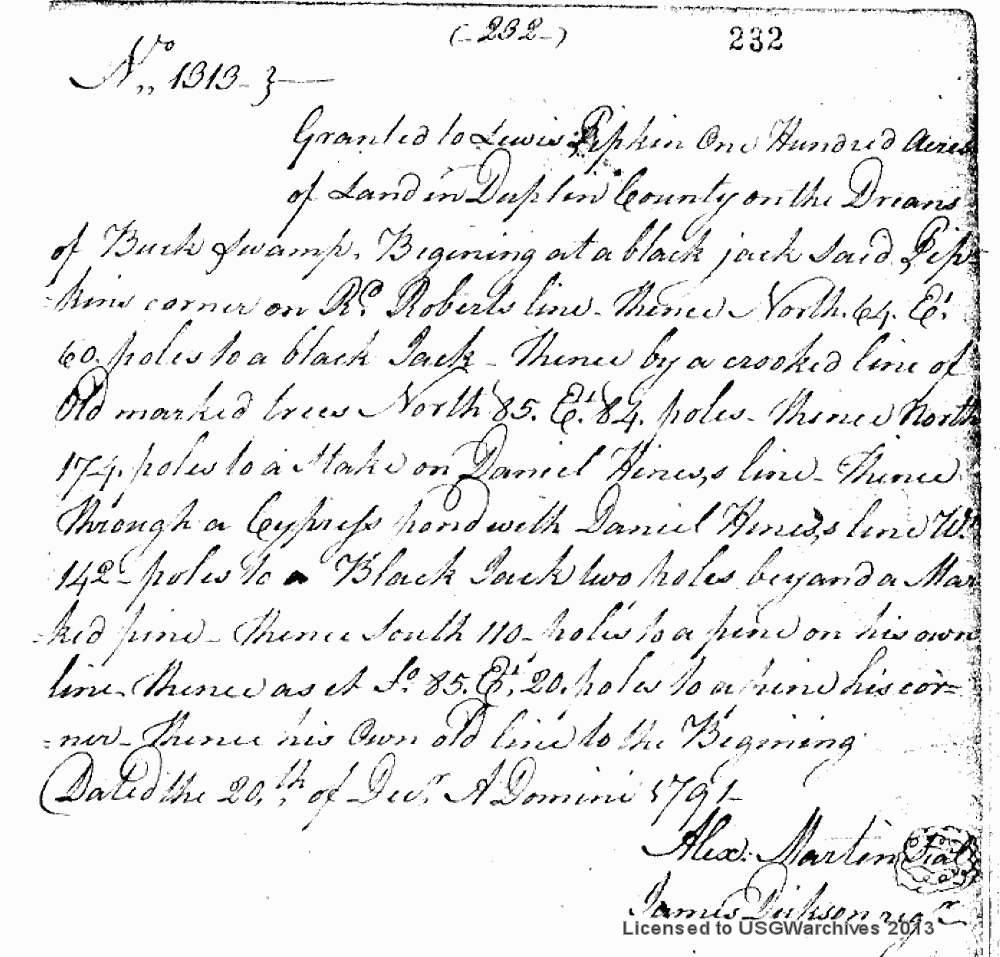 (-232-) 232
No,, 1313-}
Granted to Lewis Pipkin One Hundred Acres
of Land in Duplin County on the Dreans
of Buck Swamp. Begining at a black jack said Pip-
-kins corner on Rd. Roberts line. thence North. 64. Et.
60. poles to a black Jack - thence by a crooked line of
Old marked trees North 85. Et. 84. poles - thence North
174. poles to a Stake on Daniel Hines,s line - thence
through a Cypress pond with Daniel Hines,s line Wt.
142 - poles to a Black Jack two poles beyand a Mar
-ked pine - thence South 110 - poles to a pine on his own
line - thence as it So. 85. Et. 20. poles to a pine his cor=
=ner - thence his Own old line to the Begining
Dated the 20,th, of Decr. A Domini 1791 -
Alex. Martin Seal
James Dickson regr
Licensed to USGWarchives 2013